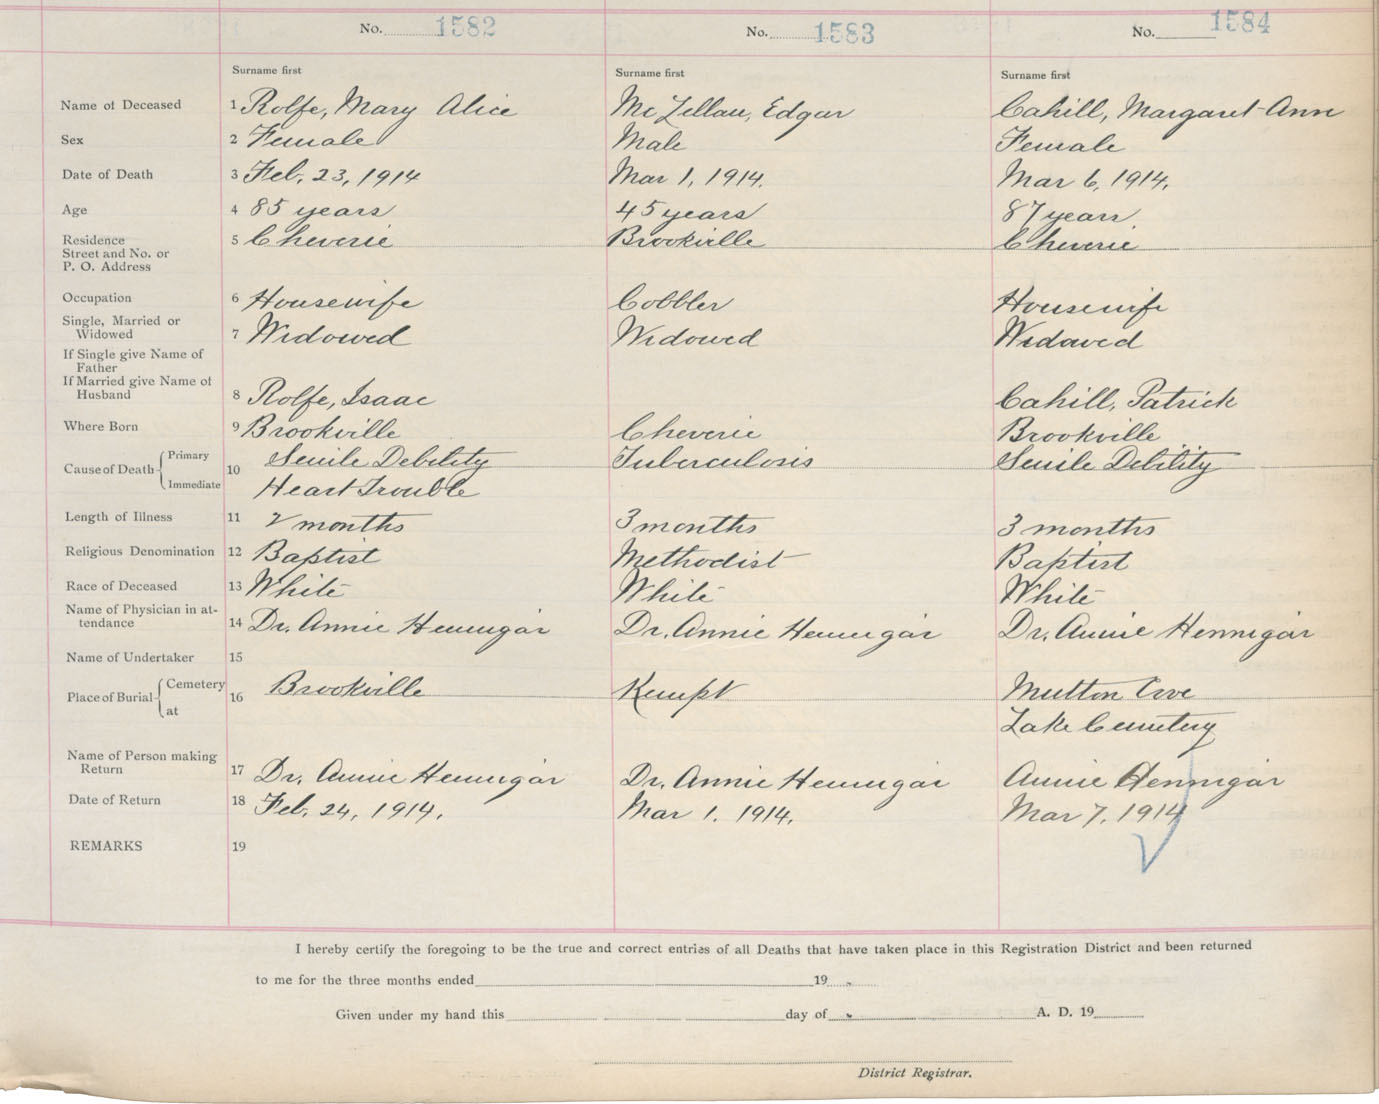 No. 1582 No. 1583 No. 1584
Surname first Surname first Surname first
Name of Deceased 1 Rolfe, Mary Alice McLellan, Edgar Cahill, Margaret Ann
Sex 2 Female Male Female
Date of Death 3 Feb. 23, 1914 Mar 1, 1914. Mar 6, 1914.
Age 4 85 years 45 years 87 years
Residence 5 Cheverie Brookville Cheverie
Street and No. or
P. O. Address
Occupation 6 Housewife Cobbler Housewife
Single, Married or
Widowed 7 Widowed Widowed Widowed
If Single give Name of
Father
If Married give Name of
Husband 8 Rolfe, Isaac Cahill, Patrick
Where Born 9 Brookville Cheverie Brookville
Cause of Death Primary 10 Senile Debility Tuberculosis Senile Debility
Immediate Heart Trouble
Length of Illness 11 2 months 3 months 3 months
Religious Denomination 12 Baptist Methodist Baptist
Race of Deceased 13 White White White
Name of Physician in at-
tendance 14 Dr. Annie Hennigar Dr. Annie Hennigar Dr. Annie Hennigar
Name of Undertaker 15
Place of Burial Cemetery 16 Brookville Kempt Mutton Cove
at Lake Cemetery
Name of Person making
Return 17 Dr. Annie Hennigar Dr. Annie Hennigar Annie Hennigar
Date of Return 18 Feb. 24, 1914. Mar 1. 1914. Mar 7. 1914
REMARKS 19
I hereby certify the foregoing to be the true and correct entries of all Deaths that have taken place in this Registration District and been returned
to me for the three months ended 19
Given under my hand this day of A. D. 19
District Registrar.